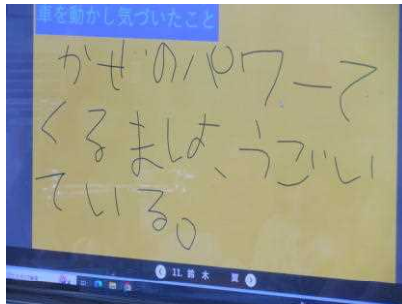 車を動かし気づいたこと
かぜのパワーで
くるまは、うごい
ている。
11. 鈴木 夏